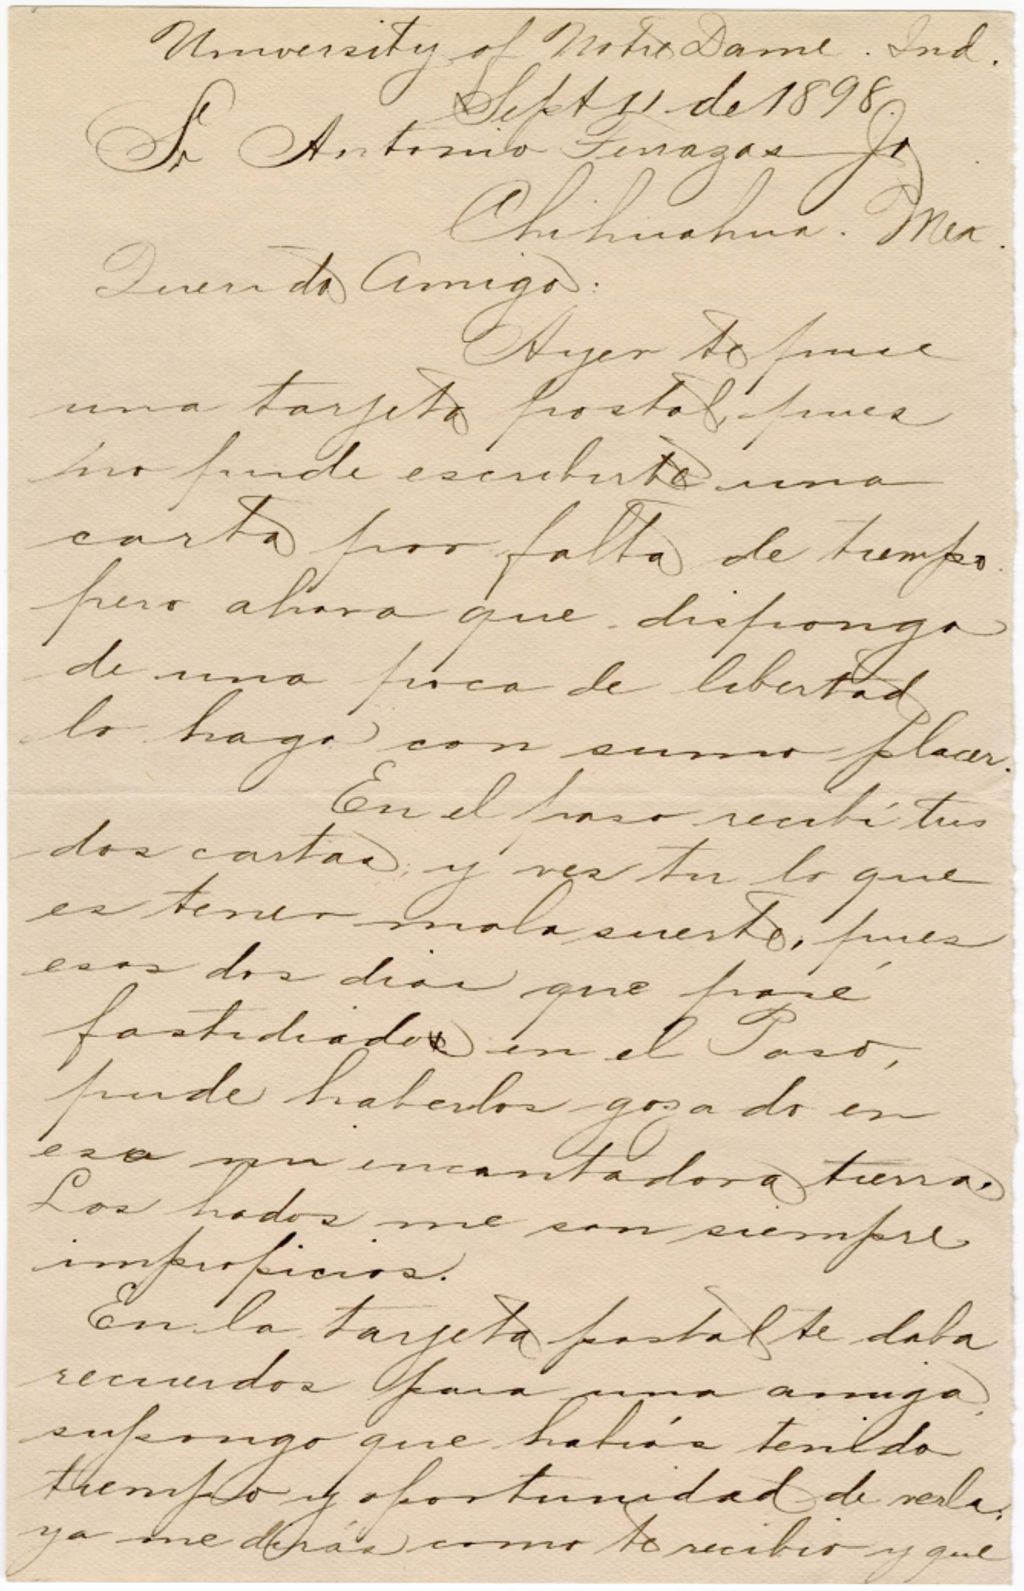 University of Notre Dame. Ind.
Sept 11 de 1898.
Sr Antonio Terrazas Jr
Chihuahua. Mex.
Querido Amigo:
Ayer te puse
una tarjeta postal, pues
no pude escribirte una
carta por falta de tiempo.
pero ahora que dispongo
de una poca de libertad
lo hago con sumo placer.
En el paso recibí tus
dos cartas, y ves tu lo que
es tener mala suerte, pues
esos dos dias que pasé
fastidiado en el Paso,
pude haberlos gozado en
esa mi encantadora tierra.
Los hados me son siempre
impropicios.
En la tarjeta postal te daba
recuerdos para una amiga,
supongo que habiás tenido
tiempo y oportunidad de verla.
ya me dirás como te recibio y que